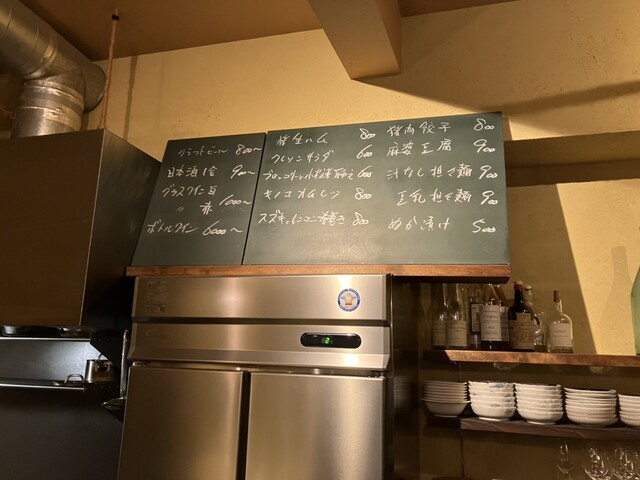 クラフトビール 800〜
日本酒1合 900〜
グラスワイン 白
〃 赤 1000〜
ボトルワイン 6000〜
猪生ハム 800
クレソンサラダ 600
ブロッコリーの 600
キノコオムレツ 800
スズキ ベーコン 巻き 800
猪肉餃子 800
麻婆豆腐 900
汁なし担々麺 900
豆乳担々麺 900
ぬか漬け 500